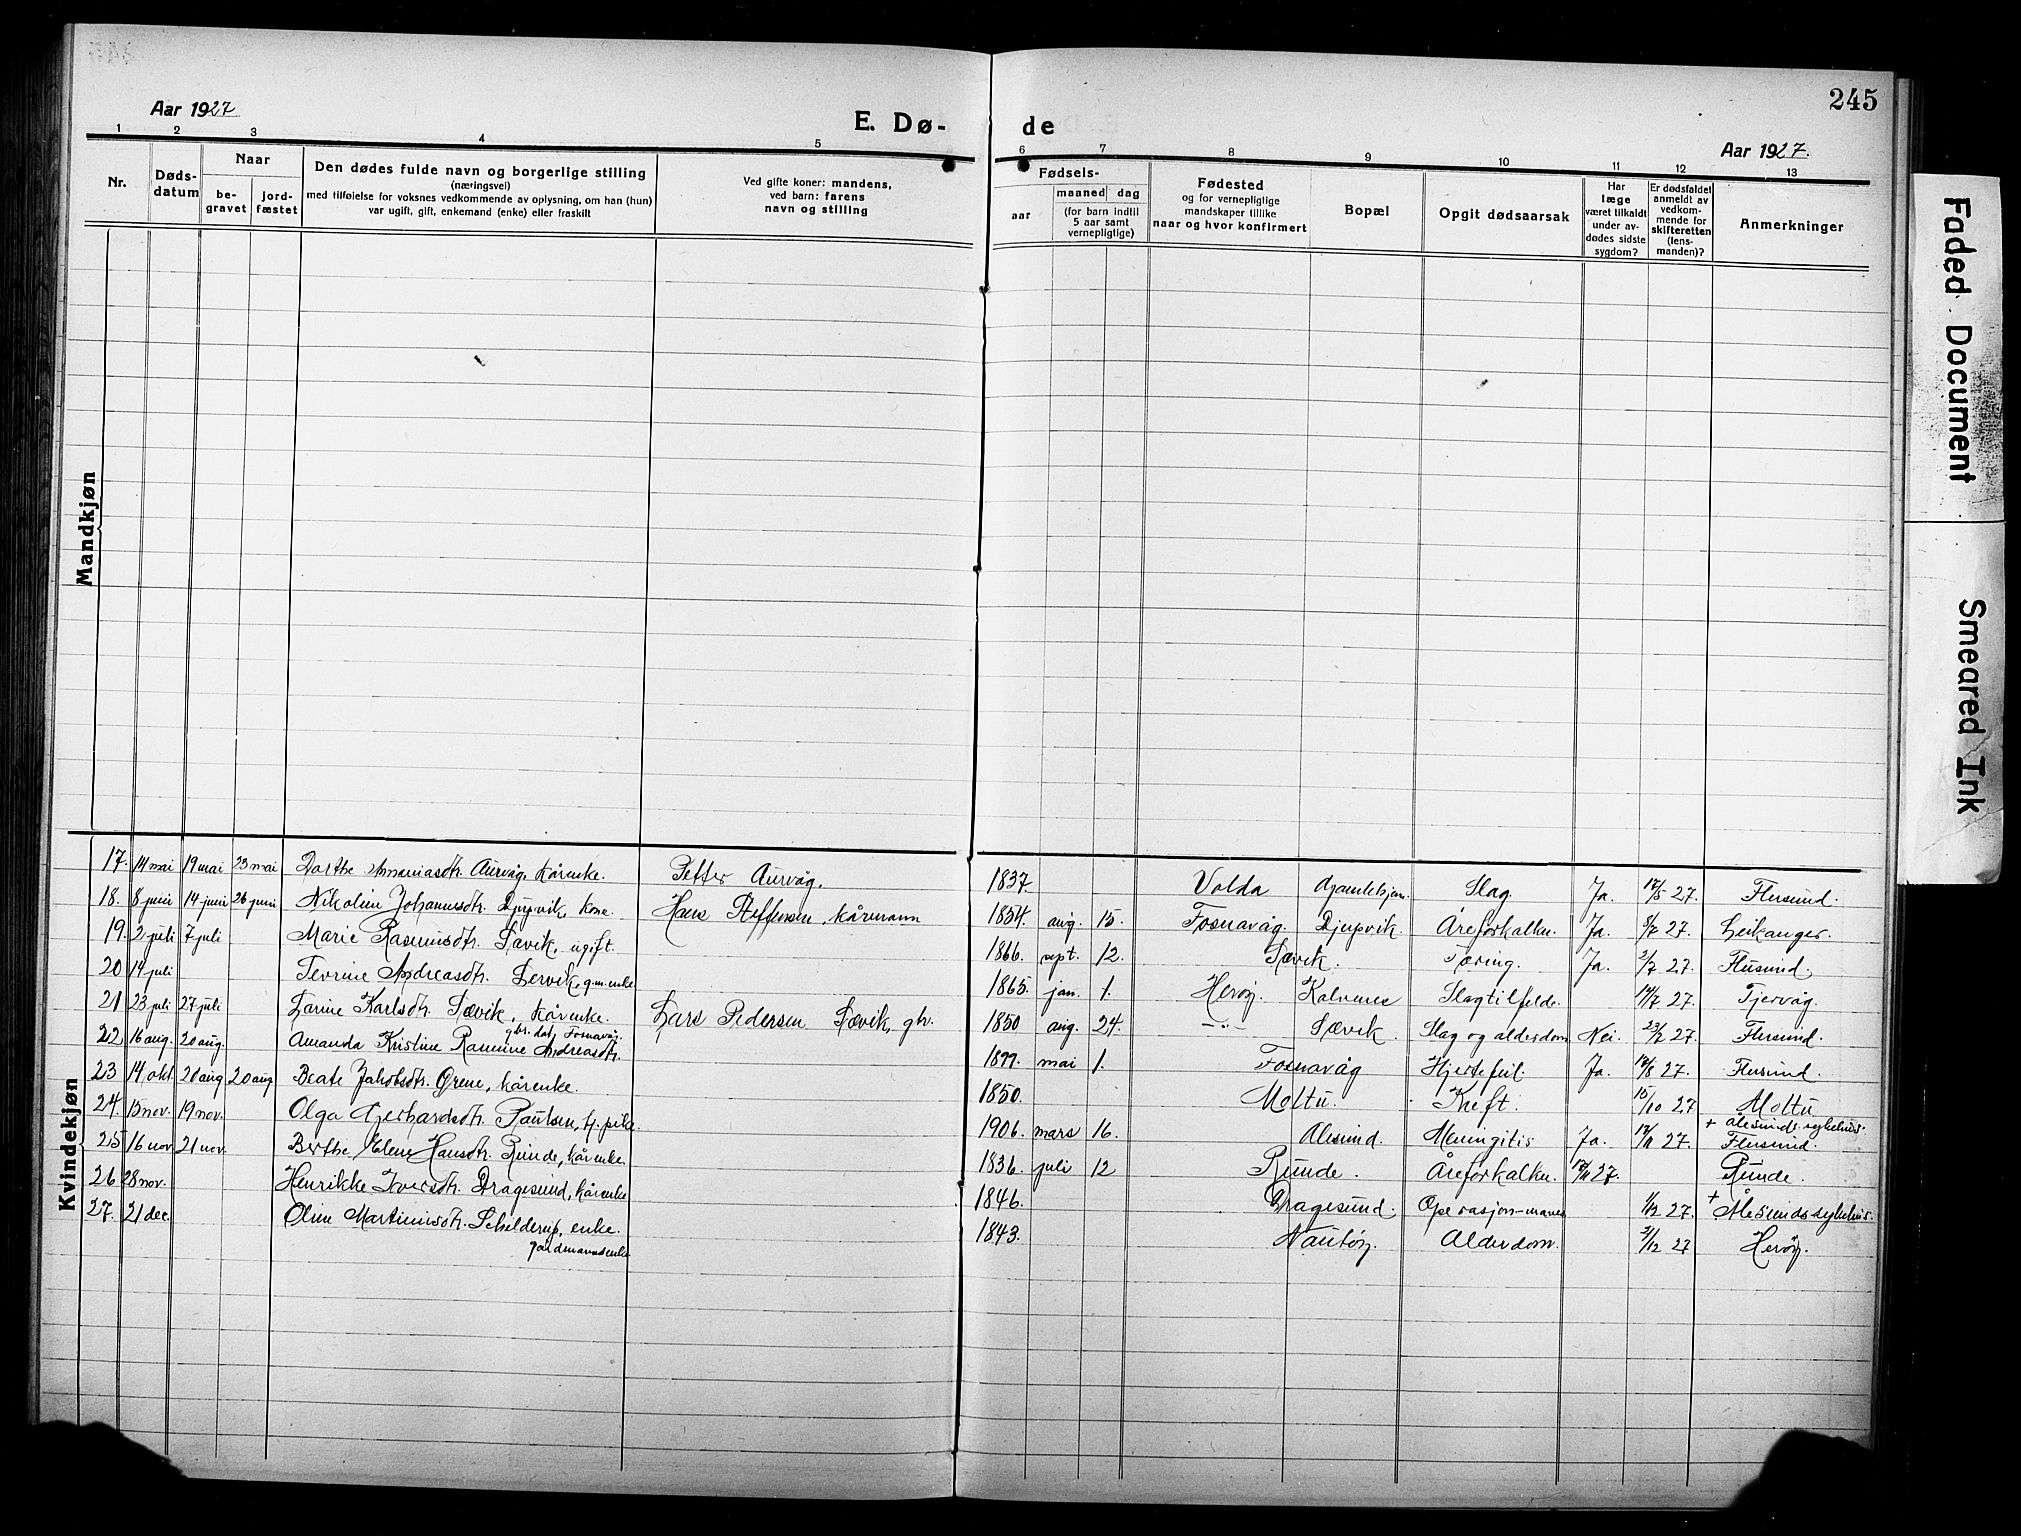 245
Aar 1927
E. Dø-
de
Aar 1927.
1 2 3 4 5 6 7 8 9 10 11 12 13
Nr.
Døds-
datum
Naar
be-
gravet
jord-
fæstet
Den dødes fulde navn og borgerlige stilling
(næringsvei)
med tilføielse for voksnes vedkommende av oplysning, om han (hun)
var ugift, gift, enkemand (enke) eller fraskilt
Ved gifte koner: mandens,
ved barn: farens
navn og stilling
Fødsels-
aar
maaned dag
(for barn indtil
5 aar samt
vernepligtige)
Fødested
og for vernepligtige
mandskaper tillike
naar og hvor konfirmert
Bopæl
Opgit dødsaarsak
Har
læge
været tilkaldt
under av-
dødes sidste
sygdom?
Er dødsfaldet
anmeldt av
vedkom-
mende for
skifteretten
(lens-
manden)?
Anmerkninger
Mandkjøn
Kvindekjøn
17. 14 mai 19 mai 23 mai Dorthe Ananiasdtr. Aurvåg, kårenke. Petter Aurvåg. 1837. Volda Slag Ja. 17/5 27. Flusund.
18. 8 juni 14 juni 26 juni Nikoline Johannesdtr. Djupvik, kone. Hans Steffensen, kårmann 1854. aug. 15. Fosnavåg. Djupvik. Åreforkalkn. Ja. 8/7 27. Leikanger.
19. 2 juli 7 juli Marie Rasmusdtr. Sævik, ugift. 1866. sept. 12. Sævik. Tæring. Ja. 2/7 27. Flusund.
20 14 juli Tevrine Andreasdtr. Lervik, gm.enke 1865. jan. 1. Herøy. Kalvenes Slagtilfelde. 14/7 27. Tjervåg.
21 23 juli 27 juli Larine Karlsdtr. Sævik, kårenke. Lars Pedersen Sævik, gbr. 1850 aug. 24. -"- Sævik. Slag og alderdom Nei. 23/7 27. Flusund.
gbr. dat. Fosnavåg.
22. 16 aug. 20 aug. Amanda Kristine Rasmine Andreasdtr. 1899. mai 1. Fosnavåg Hjertefeil. Ja. 17/8 27. Flusund.
23 14 okt. 20 aug 20 aug Beate Jakobsdtr. Grene, kårenke. 1850. Moltu. Kreft. 15/10 27 Moltu
24. 15 nov. 19 nov. Olga Gerhardsdtr. Paulsen, tj.pike. 1906. mars 16. Ålesund. Meningitis Ja. 17/11 27. + Ålesunds sykehus. Flusund.
25 16 nov 21 nov. Berthe Elene Hansdtr. Runde, kårenke. 1836. juli 12 Runde. Åreforkalkn. 17/11 27. Runde.
26 28 nov. Henrikke Iversdtr. Dragesund, kårenke 1846. Dragesund. Operasjon-mave 1/12 27. + Ålesunds sykehus.
27. 21 dec. Oline Martinusdtr. Schelderup, enke. 1843. Nautøy. Alderdom. 31/12 27 Herøy.
gårdmannsenke
Faded Document
Smeared Ink